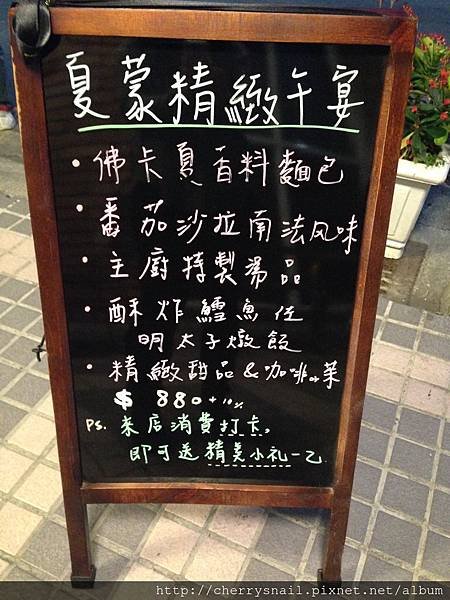 夏蒙精緻午宴
• 佛卡夏香料麵包
• 番茄沙拉南法风味
• 主廚特製湯品
• 酥炸鱈魚佐
明太子燉飯
• 精緻甜品&咖啡or茶
$ 880+10%
Ps. 來店消費打卡,
即可送精美小礼一乙.
http://cherrysnail.pixnet.net/album